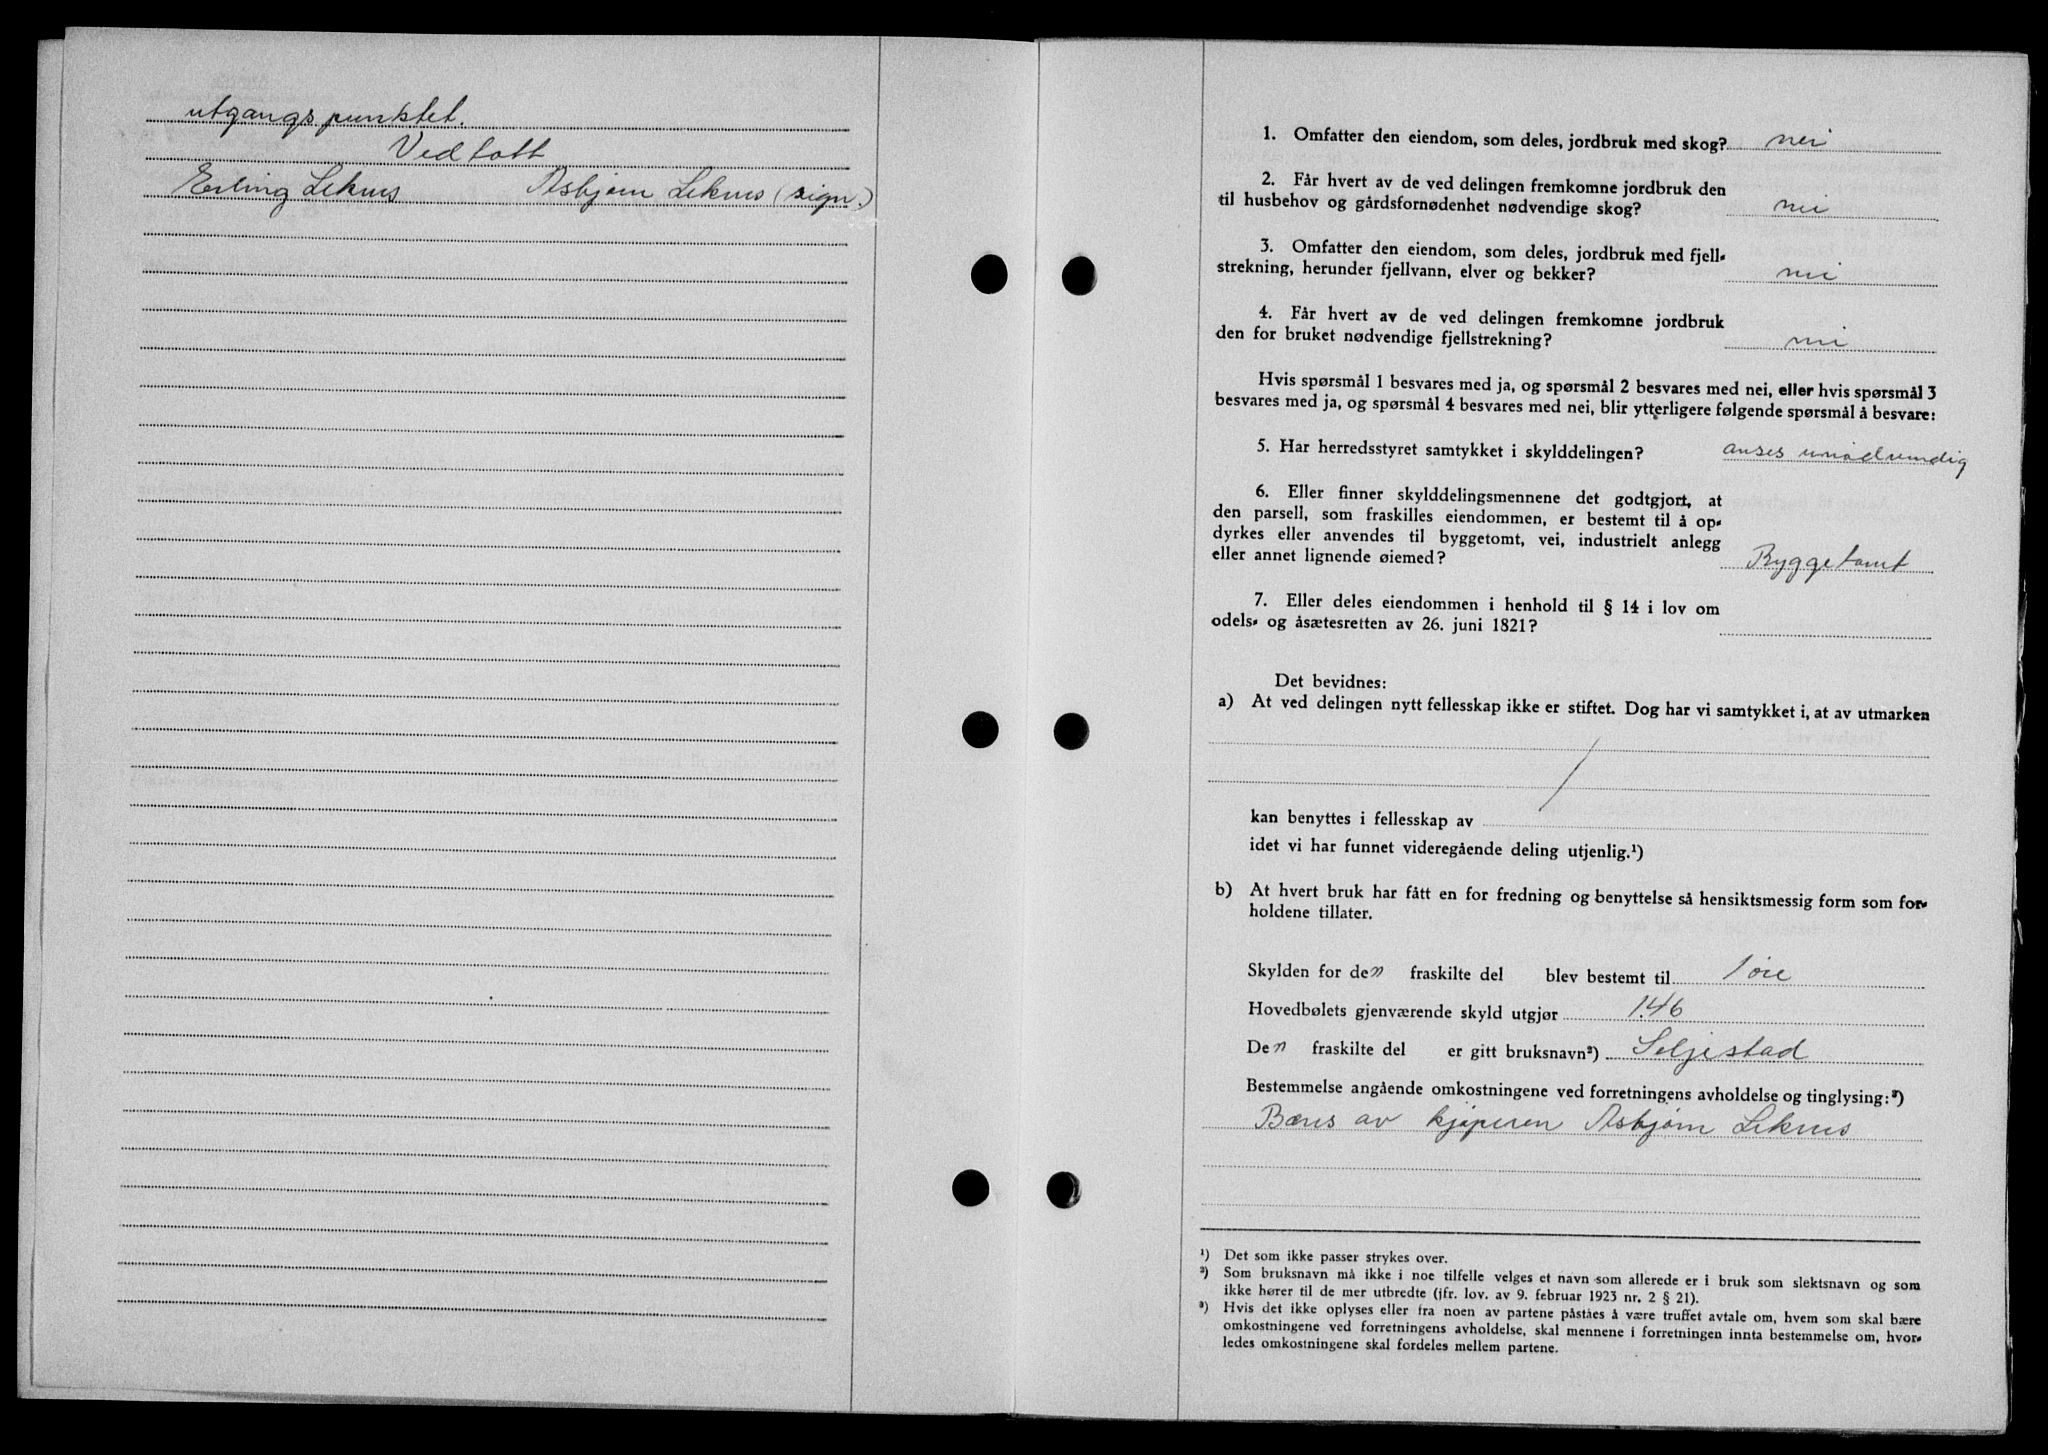 utgangspunktet.
Vedtatt
Erling Leknes Asbjørn Leknes (sign.)
1. Omfatter den eiendom, som deles, jordbruk med skog? nei
2. Får hvert av de ved delingen fremkomne jordbruk den
til husbehov og gårdsfornødenhet nødvendige skog? nei
3. Omfatter den eiendom, som deles, jordbruk med fjell-
strekning, herunder fjellvann, elver og bekker? nei
4. Får hvert av de ved delingen fremkomne jordbruk
den for bruket nødvendige fjellstrekning? nei
Hvis spørsmål 1 besvares med ja, og spørsmål 2 besvares med nei, eller hvis spørsmål 3
besvares med ja, og spørsmål 4 besvares med nei, blir ytterligere følgende spørsmål å besvare:
5. Har herredsstyret samtykket i skylddelingen? anses unødvendig
6. Eller finner skylddelingsmennene det godtgjort, at
den parsell, som fraskilles eiendommen, er bestemt til å op-
dyrkes eller anvendes til byggetomt, vei, industrielt anlegg
eller annet lignende øiemed? Byggetomt
7. Eller deles eiendommen i henhold til § 14 i lov om
odels- og åsætesretten av 26. juni 1821?
Det bevidnes:
a) At ved delingen nytt fellesskap ikke er stiftet. Dog har vi samtykket i, at av utmarken
kan benyttes i fellesskap av
idet vi har funnet videregående deling utjenlig.¹)
b) At hvert bruk har fått en for fredning og benyttelse så hensiktsmessig form som for-
holdene tillater.
Skylden for den fraskilte del blev bestemt til 1 øre
Hovedbølets gjenværende skyld utgjør 1.46
Den fraskilte del er gitt bruksnavn²) Seljestad
Bestemmelse angående omkostningene ved forretningens avholdelse og tinglysing:³)
Bæres av kjøperen Asbjørn Leknes
¹) Det som ikke passer strykes over.
²) Som bruksnavn må ikke i noe tilfelle velges et navn som allerede er i bruk som slektsnavn og som
ikke hører til de mer utbredte (jfr. lov. av 9. februar 1923 nr. 2 § 21).
³) Hvis det ikke oplyses eller fra noen av partene påstås å være truffet avtale om, hvem som skal bære
omkostningene ved forretningens avholdelse, skal mennene i forretningen innta bestemmelse om, hvor-
ledes omkostningene skal fordeles mellem partene.